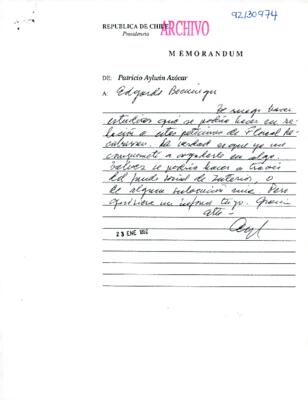 92130974
REPUBLICA DE CHILE ARCHIVO
Presidencia
MEMORANDUM
DE: Patricio Aylwin Azócar
A: Edgardo Boeninger
Te ruego hacer
estudiar qué se podría hacer en re-
lación a estas peticiones de Floreal Re-
cabarren. La verdad es que yo me
comprometí a ayudarlo en algo.
Talvez se podría hacer a través
del fondo social de Interior, o
de alguna
un informe tuyo. Gracias
atte -
23 ENE 1992